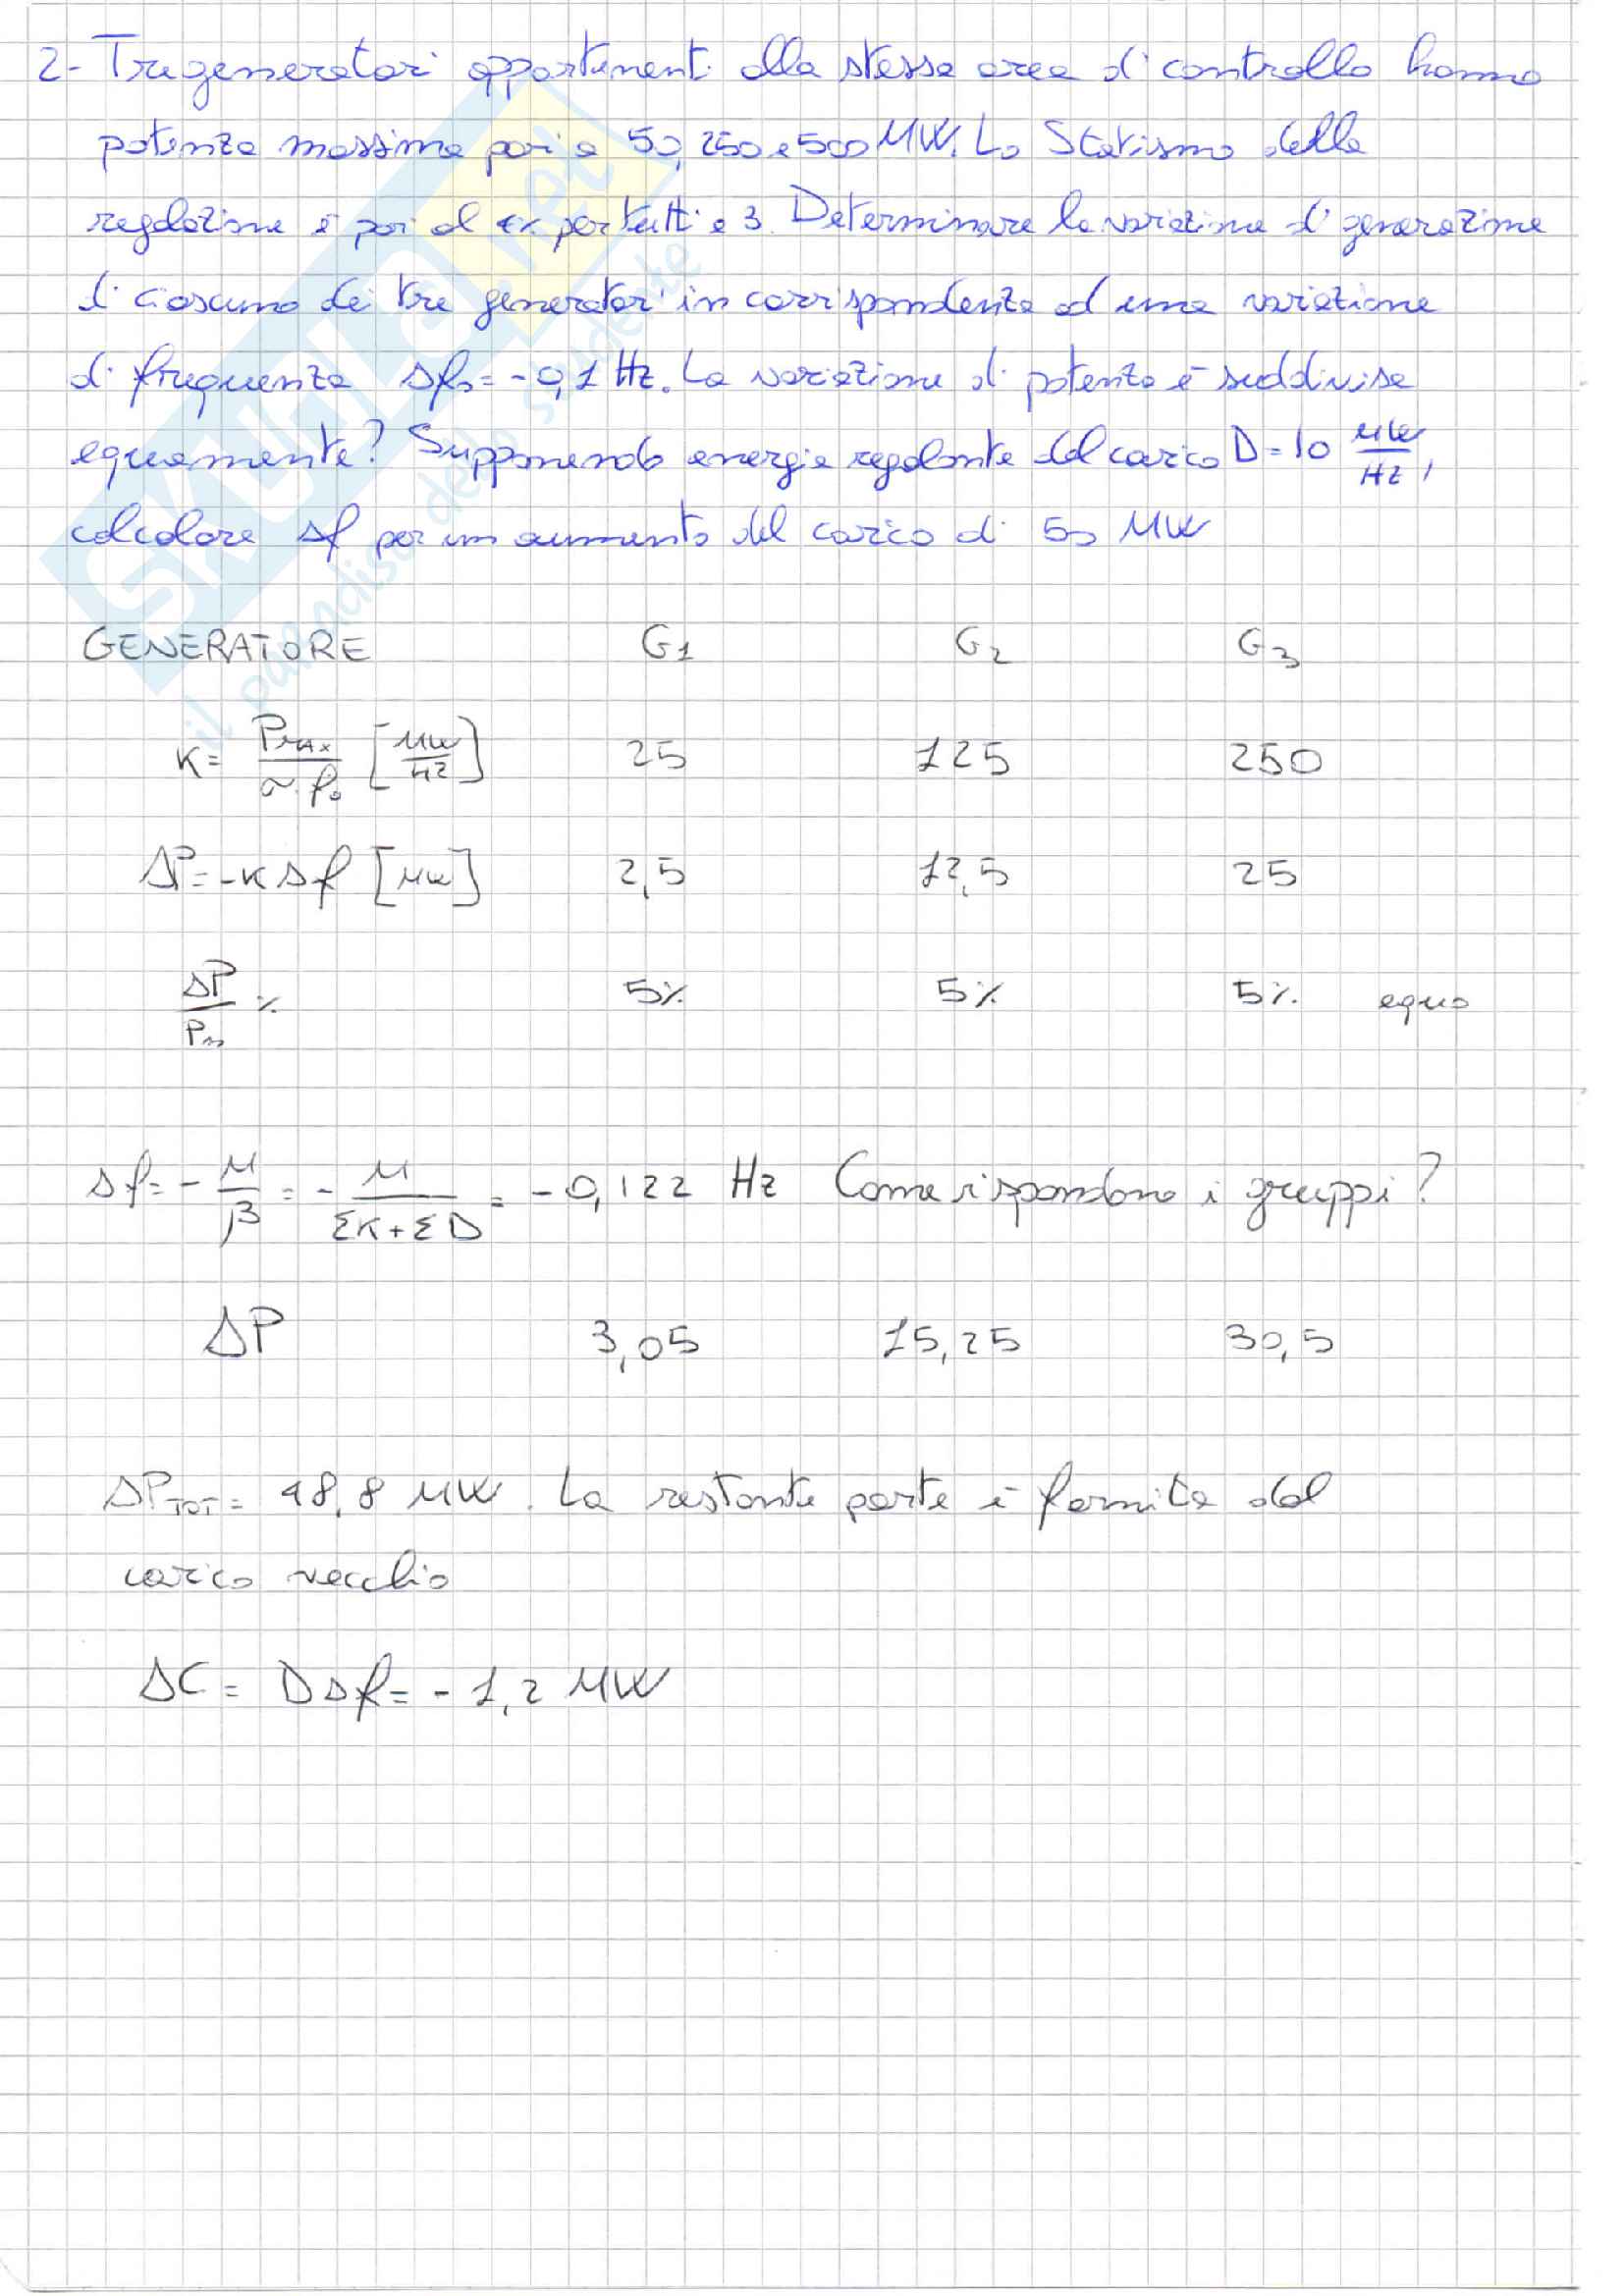 2- Tre generatori appartenenti alla stessa area di controllo hanno
potenza massima pari a 50, 250 e 500 MW. Lo Statismo della
regolazione è pari al 4% per tutti e 3. Determinare la variazione di generazione
di ciascuno dei tre generatori in corrispondenza ad una variazione
di frequenza Δf₀ = -0,1 Hz. La variazione di potenza è suddivisa
equamente? Supponendo energia regolante del carico D = 10 MW/Hz,
calcolare Δf per un aumento del carico di 50 MW
GENERATORE G1 G2 G3
K = PMAX/σ·f₀ [MW/HZ] 25 125 250
ΔP = -KΔf [MW] 2,5 12,5 25
ΔP/Pn % 5% 5% 5% equo
Δf = - M/β = - M/ΣK+ΣD = -0,122 Hz Come rispondono i gruppi?
ΔP 3,05 15,25 30,5
ΔPTOT = 48,8 MW. La restante parte è fornita dal
carico vecchio
ΔC = DΔf = -1,2 MW
SKUOLA.net
il paradiso dello studente